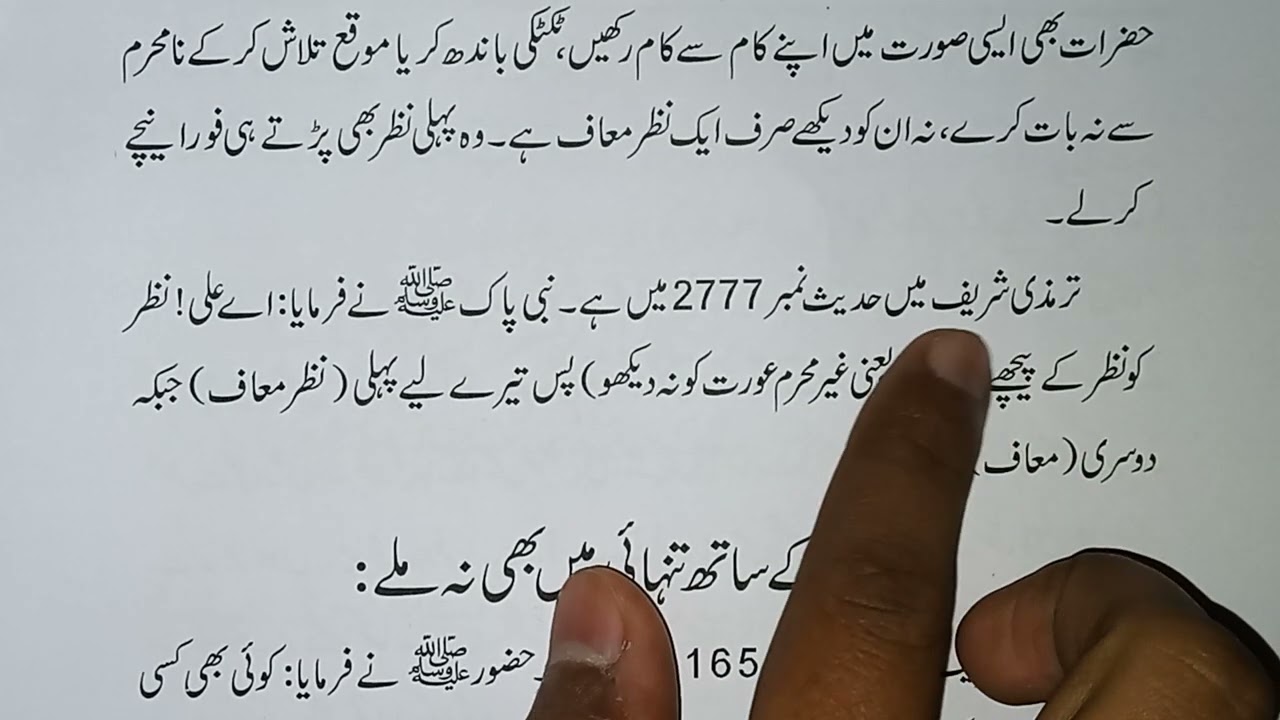 حضرات بھی ایسی صورت میں اپنے کام سے کام رکھیں، ٹکٹکی باندھ کر یا موقع تلاش کر کے نامحرم
سے نہ بات کرے، نہ ان کو دیکھے صرف ایک نظر معاف ہے۔ وہ پہلی نظر بھی پڑتے ہی فورا نیچے
کرلے۔
ترمذی شریف میں حدیث نمبر 2777 میں ہے۔ نبی پاک ﷺ نے فرمایا: اے علی! نظر
کو نظر کے پیچھے یعنی غیر محرم عورت کو نہ دیکھو) پس تیرے لیے پہلی (نظر معاف) جبکہ
دوسری (معاف)
کے ساتھ تنہائی میں بھی نہ ملے:
165 حضور ﷺ نے فرمایا: کوئی بھی کسی